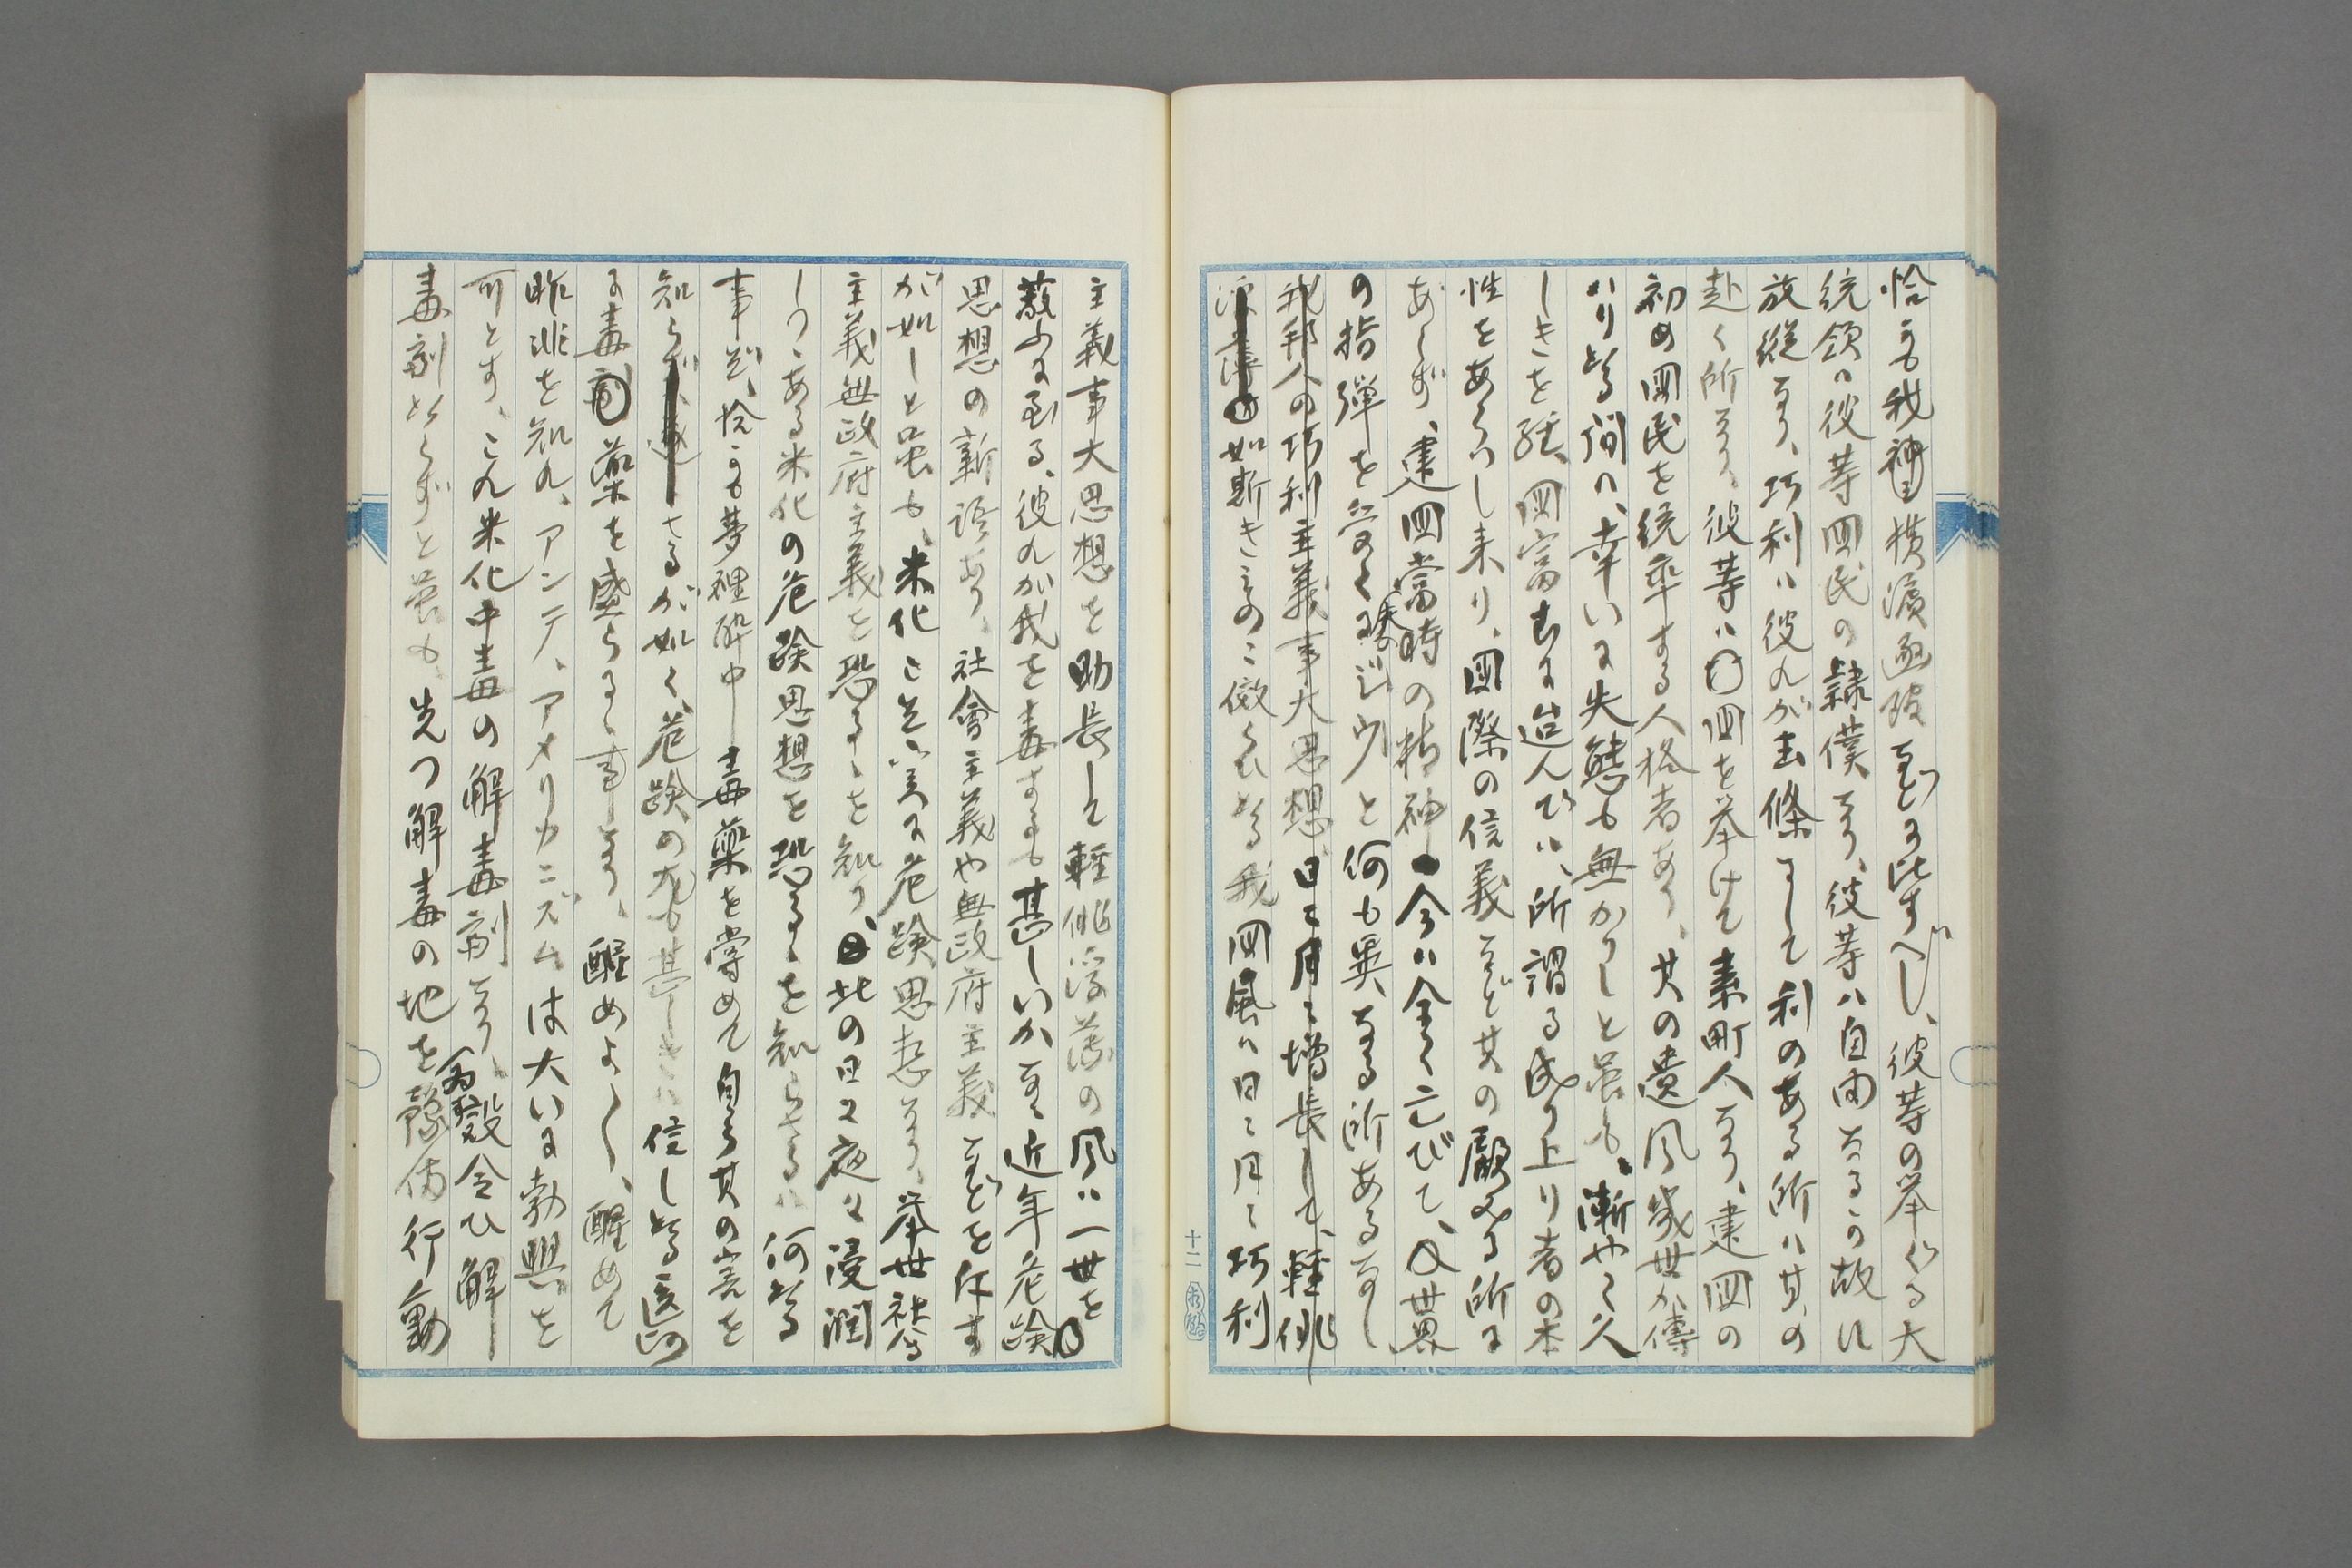 恰かも我神戸横濱通波などに比すべし、彼等の挙ぐる大
統領ハ彼等國民の隷僕なり、彼等ハ自由なるの故に
放縦なり、巧利ハ彼れが主條にして利のある所ハ其の
赴く所なり、彼等ハ國を挙げて素町人なり、建國の
初め國民を統率する人格者あり、其の遺風幾世か傳
ハりたる間ハ、幸いに失態も無かりしと雖も、漸やく久
しきを經、國富むに造んでハ、所謂る成り上り者の本
性をあらハし来り、國際の信義など其の顧みる所に
あらず、建國當時の精神今ハ全く亡びて、世界
の指弾を受くる
と何も異なる所あるなし
我邦人の巧利主義事大思想、日に月に増長して、軽佻
浮薄如斯きものに倣らひたる我國風ハ日に月に巧利
十二
主義事大思想を助長して軽佻浮薄の風ハ一世を
蔽ふに至る、彼れが我を毒するも甚しいかな、近年危険
思想の新語あり、社會主義や無政府主義などを斥す
が如しと雖も、米化こそ実に危険思想なり、挙世社會
主義無政府主義を恐るゝを知り、此の日に夜に浸潤
しつゝある米化の危険思想を恐るゝを知らざるハ何たる
事ぞ、恰かも夢裡酔中毒藥を嘗めて自ら其の害を
知らざるが如く、危険の尤も甚しきハ信じたる医師
に毒藥を盛らるゝ事なり、醒めよ〳〵、醒めて
昨非を知れ、アンテ、アメリカニズムは大いに勃興を
可とす、これ米化中毒の解毒劑なり、為政令ひ解
毒劑たらずと雖も、先つ解毒の地を豫備行動